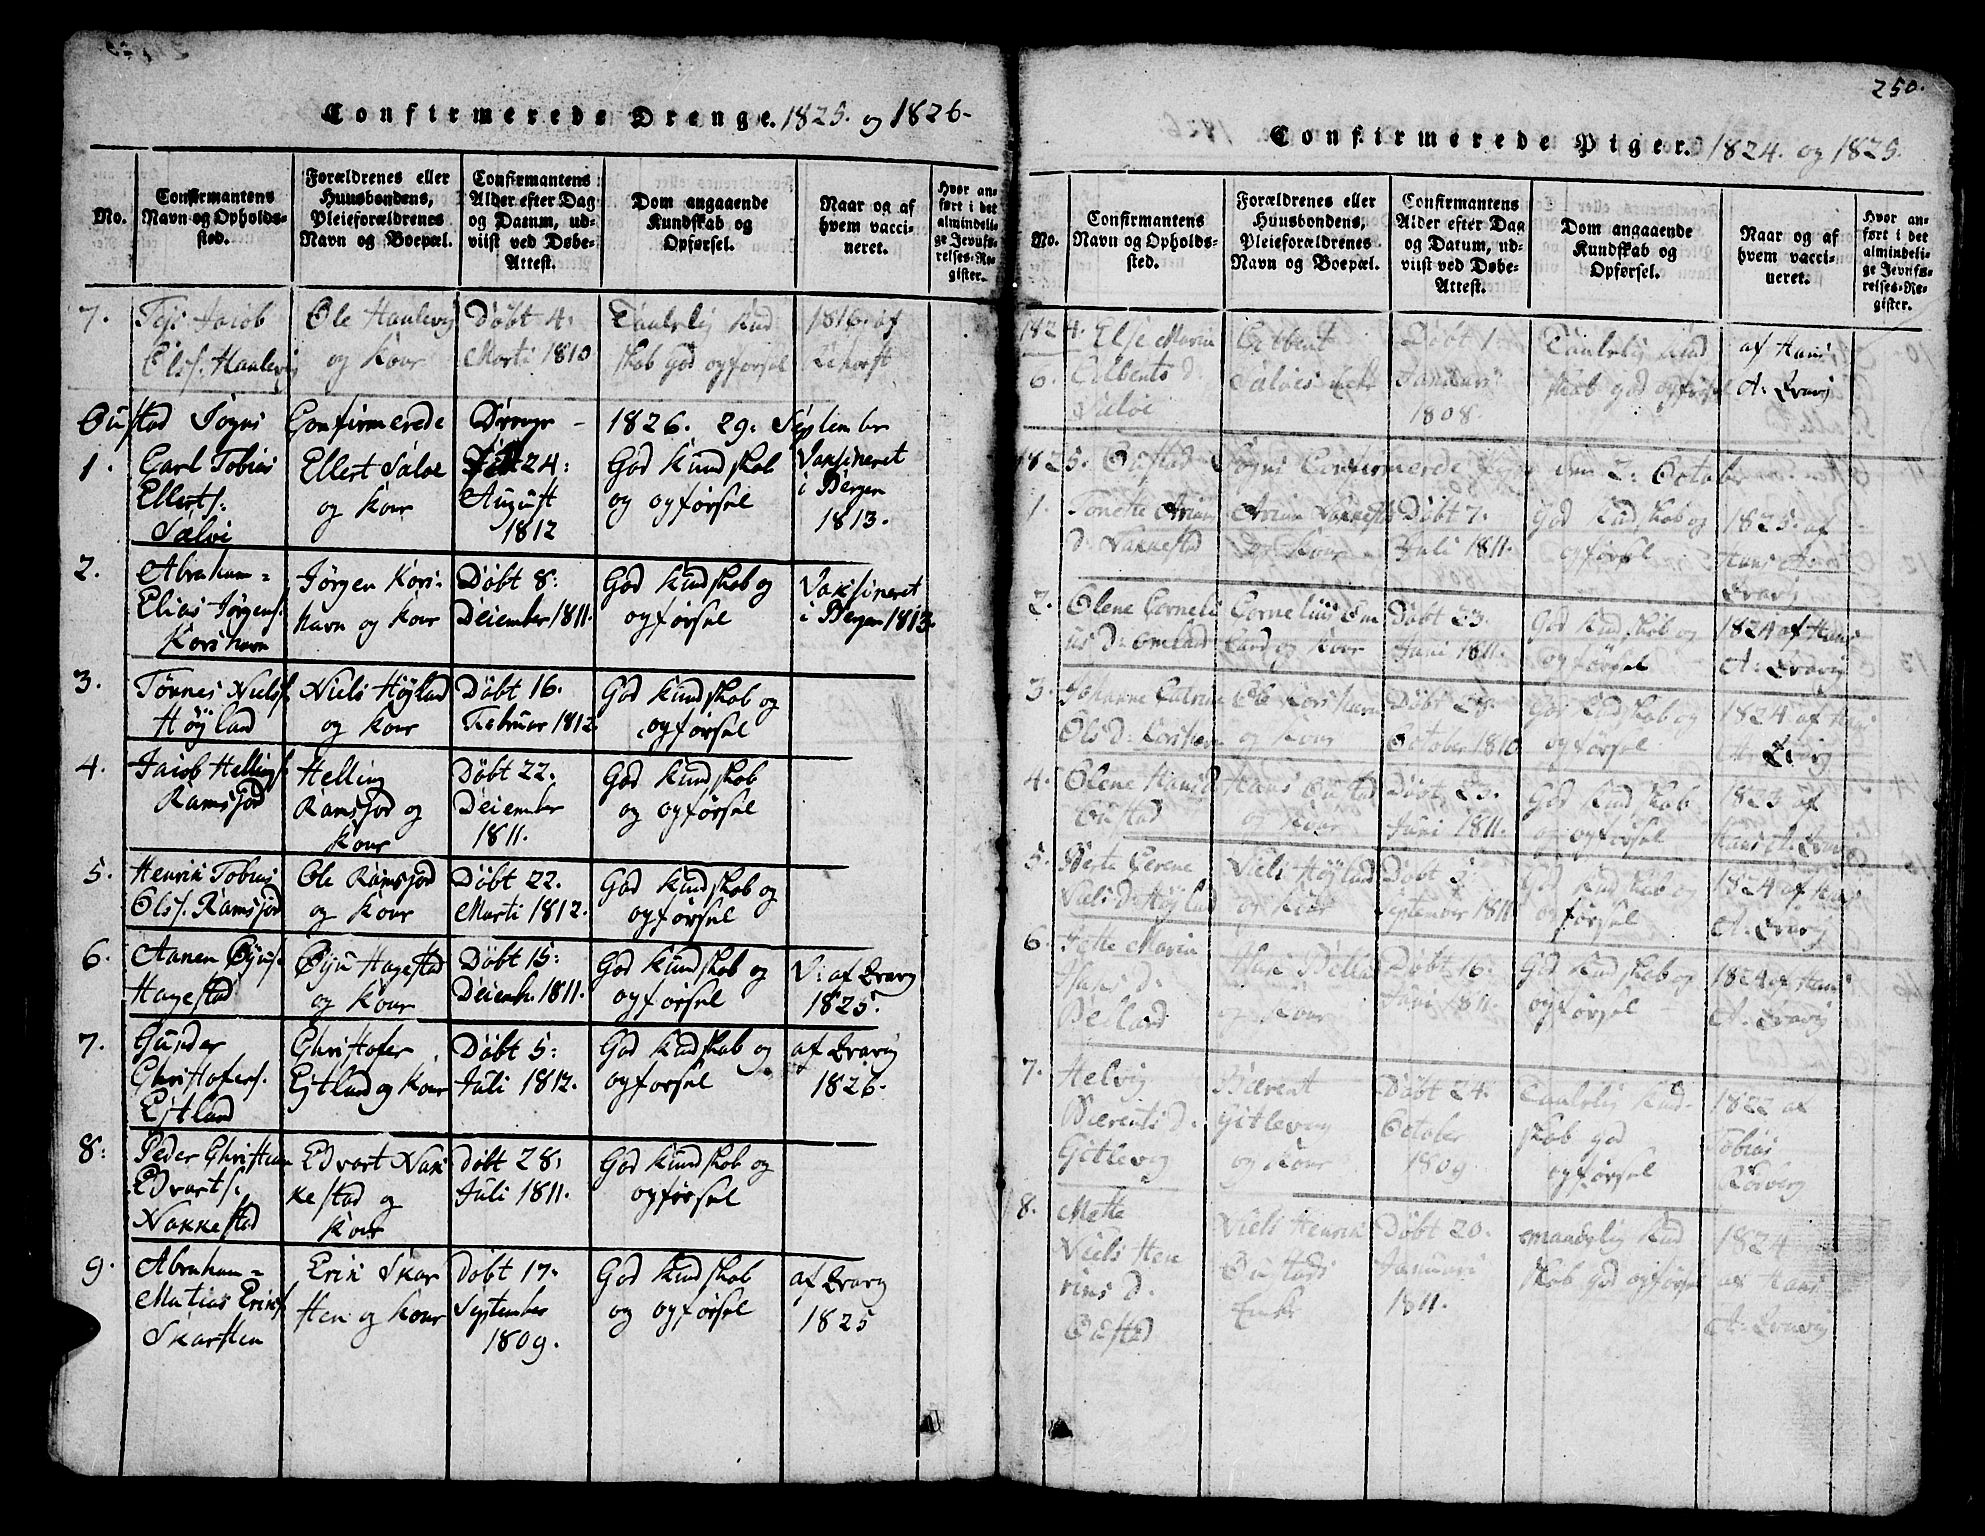 Confirmerede Drenge. 1825. og 1826.
No.
Confirmantens
Navn og Opholds-
sted.
Forældrenes eller
Huusbondens,
Pleieforældrenes
Navn og Boepæl.
Confirmantens
Alder efter Dag
og Datum, ud-
viist ved Døbe-
Attest.
Dom angaaende
Kundskab og
Opførsel.
Naar og af
hvem vacci-
neret.
Hvor an-
ført i det
almindeli-
ge Jevnfø-
relses-Re-
gister.
7.
Jacob
Ols.
Ole
og Kone
Døbt 4:
Marti 1810
Taalelig Kund
skab God opførsel
1816. af
Øustad Sogns Confirmerede Drenge - 1826. 29: September
1.
Carl Tobias
Ellerts:
Saløe
Ellert Saløe
og Kone
Døbt 24:
August
1812
God Kundskab
og opførsel
Vaksineret
i Bergen
1813.
2.
Abraham =
Elias Jørgens.
Korshavn
Jørgen Kors-
havn og Kone
Døbt 8:
Deiember 1811.
God Kundskab og
opførsel
Vaksineret
i Bergen 1813.
3.
Tønnes Niels.
Høyland
Niels Høyland
og Kone
Døbt 16.
Februar 1812
God Kundskab og
opførsel
4.
Jacob Hellings.
Ramsjord
Helling
Ramsjord og
Kone
Døbt 22.
Deiember
1811.
God Kundskab
og opførsel
5.
Henrik Tobias
Ols. Ramsjord
Ole Ramsjord
og Kone
Døbt 22.
Marti 1812.
God Kundskab og
opførsel
6.
Aanen
Hagestad
Hagestad
og Kone
Døbt 15:
Deiemb. 1811.
God Kundskab og
opførsel
V: af Eravig
1825.
7.
Gunder
Christofers.
Ejtland
Christofer
Ejtland og Kone
Døbt 5:
Juli 1812.
God Kundskab og
opførsel
af Eravig
1826.
8:
Peder Christian
Edvarts.
Nakkestad
Edvart Nak
kestad og
Kone
Døbt 28:
Juli 1811.
God Kundskab og
opførsel
9.
Abraham =
Matias Eriks.
Skarsten
Erik Skar
sten og Kone
Døbt 17:
September
1809.
God Kundskab
og opførsel
af Eravig
1825
250.
Confirmerede Piger. 1824. og 1825.
No.
Confirmantens
Navn og Opholds-
sted.
Forældrenes eller
Huusbondens,
Pleieforældrenes
Navn og Boepæl.
Confirmantens
Alder efter Dag
og Datum, ud-
viist ved Døbe-
Attest.
Dom angaaende
Kundskab og
Opførsel.
Naar og af
hvem vacci-
neret.
Hvor an-
ført i det
almindeli-
ge Jevnfø-
relses-Re-
gister.
1824.
6.
Else Maria
Saløe
Saløes Enke
Døbt 1.
Januari
1808.
Taalelig Kund
skab god opførsel
af Hans
A: Eravig
1825. Øustad Sogns Confirmerede Piger den 2: October
1.
Tonette Arians
d: Nakkestad
Arian Nakkestad
og Kone
Døbt 7.
Juli 1811.
God Kundskab og
opførsel
1825. af
Hans A:
Eravig
2.
Olene Corneli
us d: Omland
Cornelius Om
land og Kone
Døbt 23.
Juni 1811.
God Kundskab og
opførsel
1824 af Hans
A: Eravig
3.
Johanne Catrine
Ols d: Korshavn
Ole Korshavn
og Kone
Døbt 28.
October 1810.
God Kundskab og
opførsel
1824 af Hans
A: Eravig
4.
Olene Hans d
Øustad
Hans Øustad
og Kone
Døbt 23.
Juni 1811.
God Kundskab
og opførsel
1823 af
Hans A: Eravig
5.
Berte Serene
Niels d: Høyland
Niels Høyland
og Kone
Døbt 3.
September 1811
God Kundskab og
opførsel
1824 af Hans
A: Eravig
6.
Jette Maria
Hans d.
Hans
og Kone
Døbt 16.
Juni 1811.
God Kundskab og
opførsel
1824 af Hans
A: Eravig
7.
Helvig
Bærents d.
Gitlevig
Bærent
Gitlevig
og Kone
Døbt 24.
October
1809
Taalelig Kund-
skab god
opførsel
1822 af
Tobias
8.
Mette
Niels Hen
riks d.
Niels Henrik
Øustads
Enke
Døbt 20.
Januari
1811.
Kund
skab God opførsel
1824
af Hans
A: Eravig